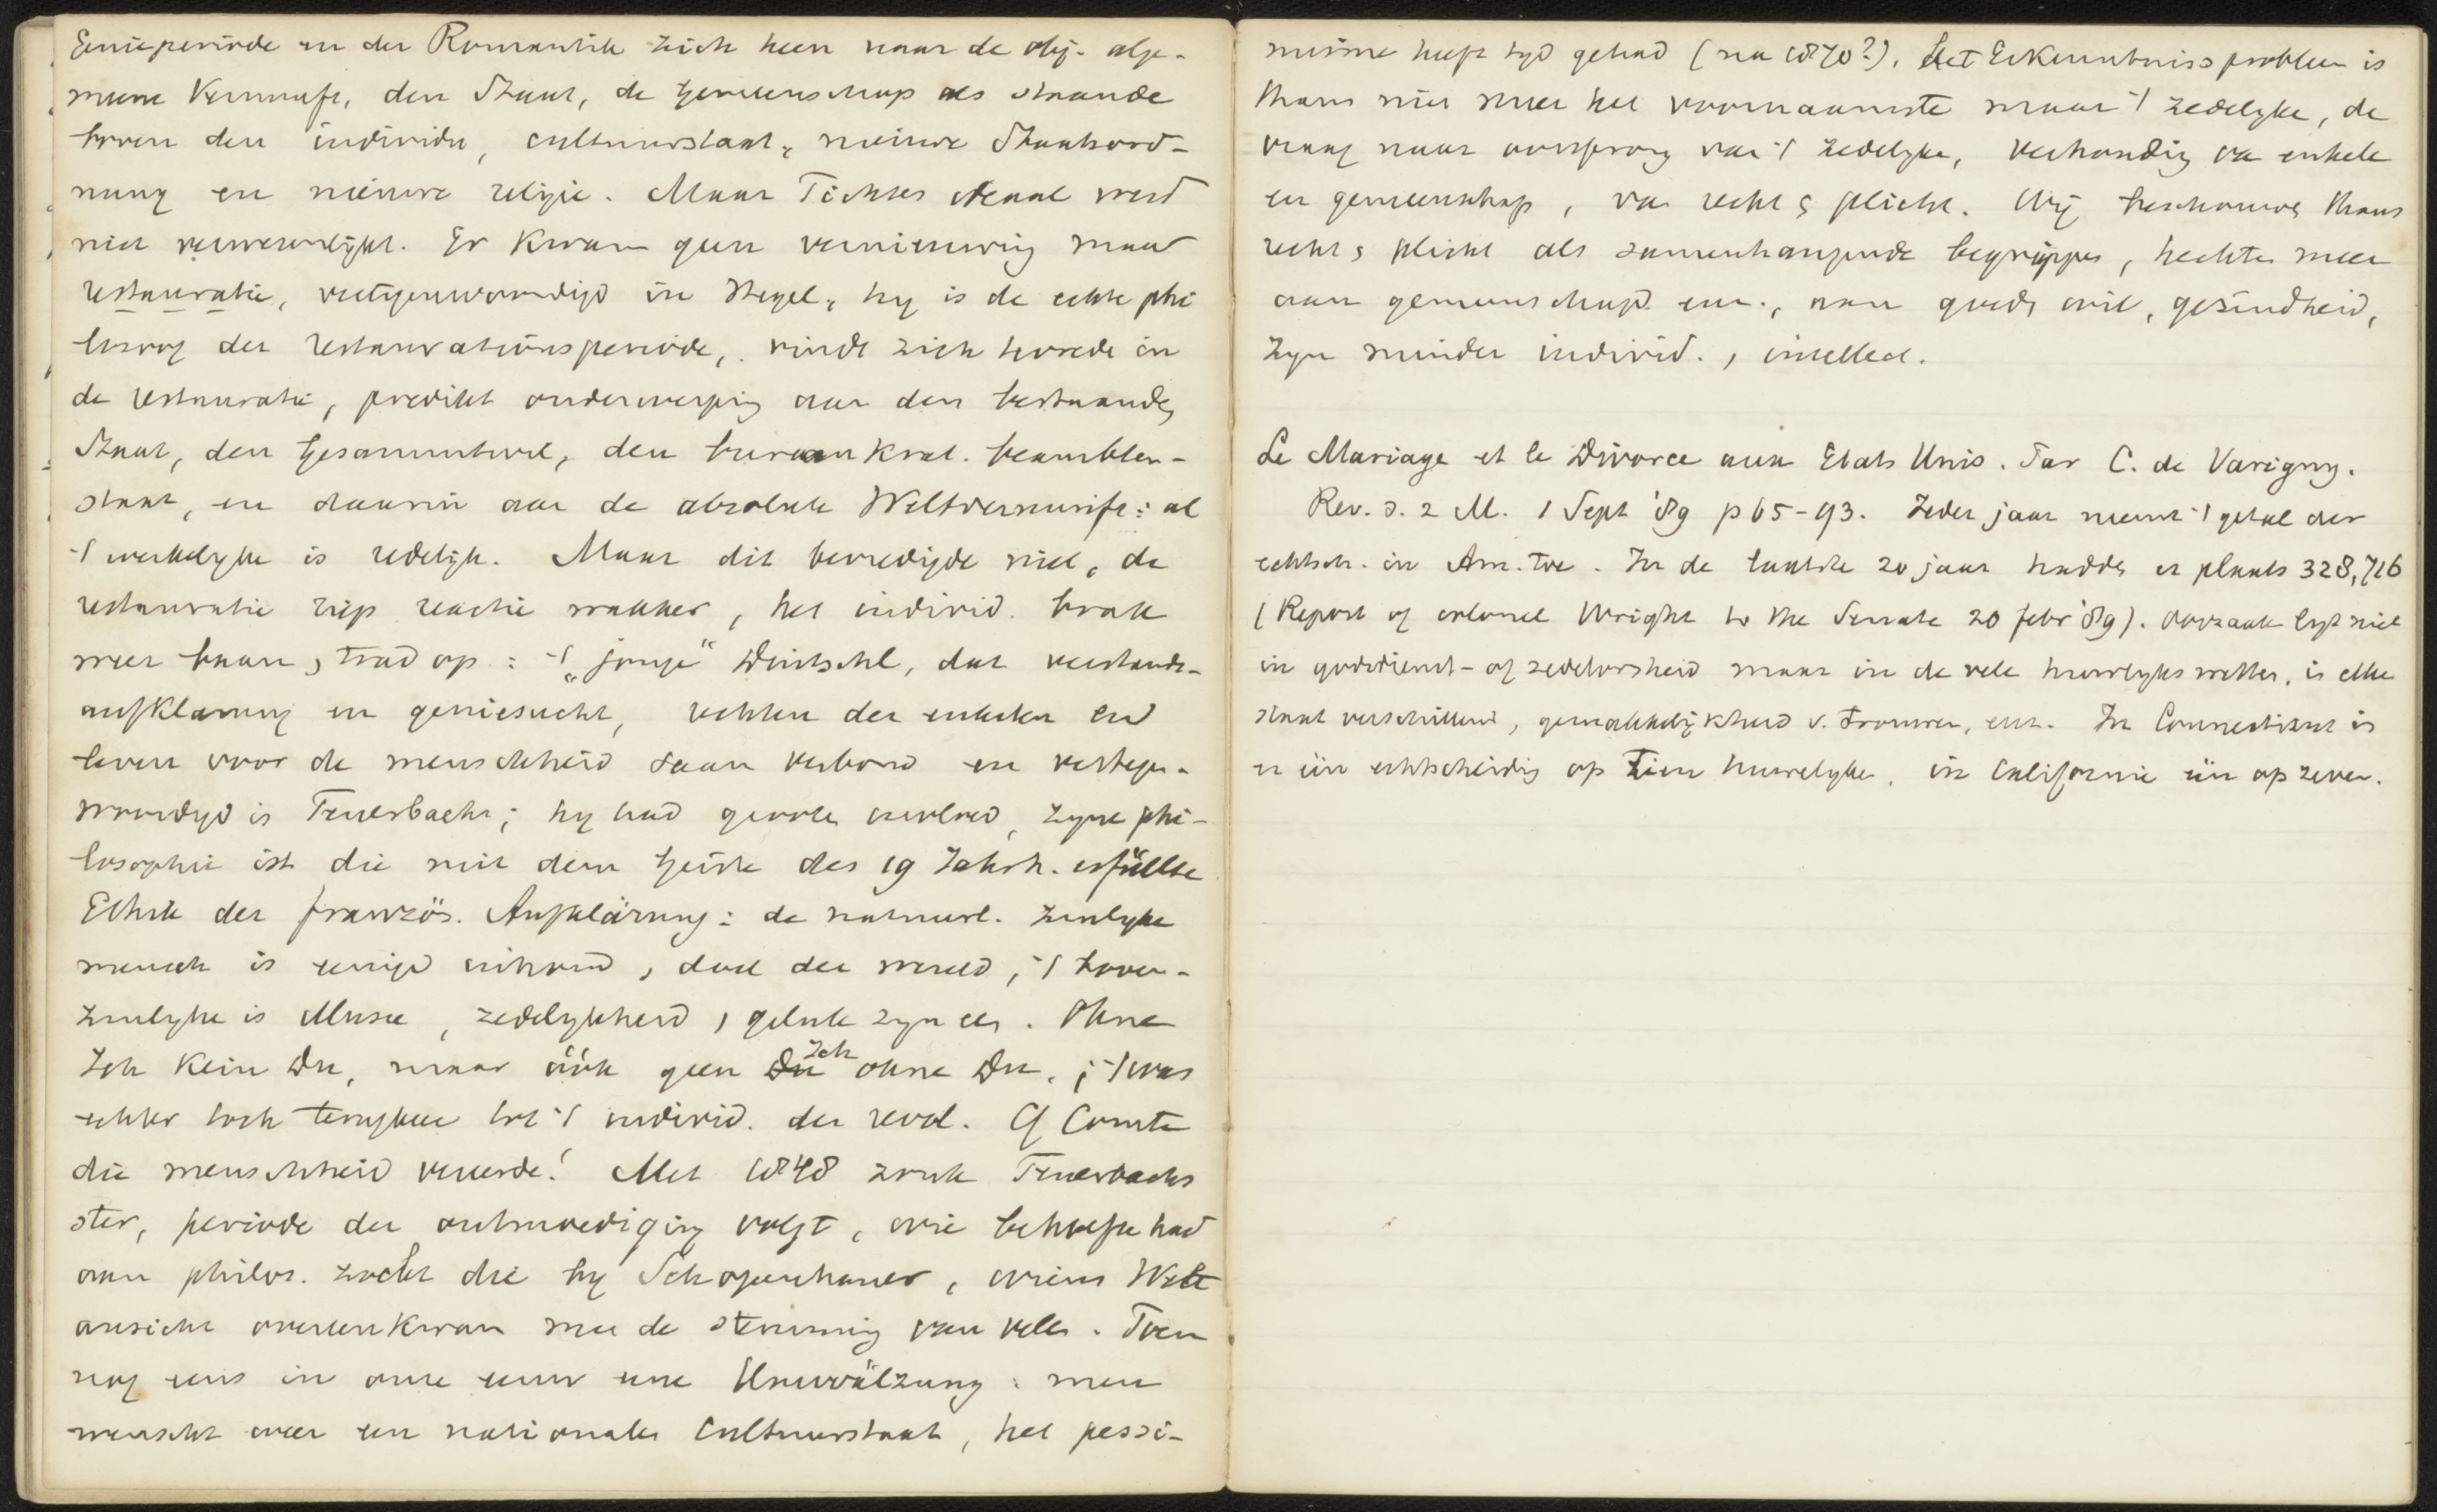 Genieperiode en der Romantik zich heen naar de obj. alge-
meene Vernunft, den Staat, de Gemeenschap als staande
boven den individu, cultuurstaat, nieuwe Staatsord-
nung en nieuwe religie. Maar Fichtes ideaal werd
niet verwezenlijkt. Er kwam geen vernieuwing maar
restauratie, vertegenwoordigd in Hegel, hy is de echte phi
losoof der Restaurationsperiode, vindt zich tevrede in
de restauratie, predikt onderwerping aan den bestaande
Staat, den Gesammtwil, den bureaukrat. beambten-
staat, en daarin aan de absolute Weltvernunft: al
't werkelyke is redelijk. Maar dit bevredigde niet, de
restauratie riep reactie wakker, het individ. brak
weer baan, trad op: 't „jonge" Duitschl, dat verstands-
aufklarung en geniesucht, rechten der enkelen en
leven voor de menschheid saam verbond en vertegen-
woordigd is Feuerbach; hy had groote invloed, zyne phi-
losophie ist die mit dem Geiste des 19 Jahrh. erfüllte
Ethik der französ. Aufklärung: de natuurl. zinlyke
mensch is eenige inhoud, doel der wereld, 't boven-
zinlyke is illusie, zedelykheid, geluk zyn een. Ohne
Ich kein Du, maar óók geen Du Ich ohne Du. ; 't was
echter toch terugkeer tot 't individ. der revol. Cf Comte
die menschheid vereerde! Met 1848 zonk Feuerbachs
ster, periode der ontmoediging volgt, wie behoefte had
aan philos. zocht die by Schopenhauer, wiens Welt
ansicht overeenkwam met de stemming van velen. Toen
nog eens in onze eeuw eene Umwälzung: men
wenscht weer een nationalen Cultuurstaat, het pessi-
misme heeft tyd gehad (na 1870?). Het Erkenntnissproblem is
thans niet meer het voornaamste maar 't zedelyke, de
vraag naar oorsprong van 't zedelyke, verhouding van enkele
en gemeenschap, van recht & plicht. Wij beschouwen thans
recht & plicht als samenhangende begrippen, hechten meer
aan gemeenschap enz., aan goede wil, gesindheid,
zyn minder individ., intellect.
Le Mariage et le Divorce aux Etats Unis. Par C. de Varigny.
Rev. d. 2 M. 1 Sept '89 p 65-93. Ieder jaar neemt 't getal der
echtsch. in Am. toe. In de laatste 20 jaar hadden er plaats 328,716
(Report of colonel Wright to the Senate 20 febr '89). Oorzaak ligt niet
in godsdienst- of zedeloosheid maar in de vele huwelykswetten, in elke
staat verschillend, gemakkelijkheid v. trouwen, enz. In Connecticut is
er één echtscheiding op tien huwelyken, in Californie één op zeven.